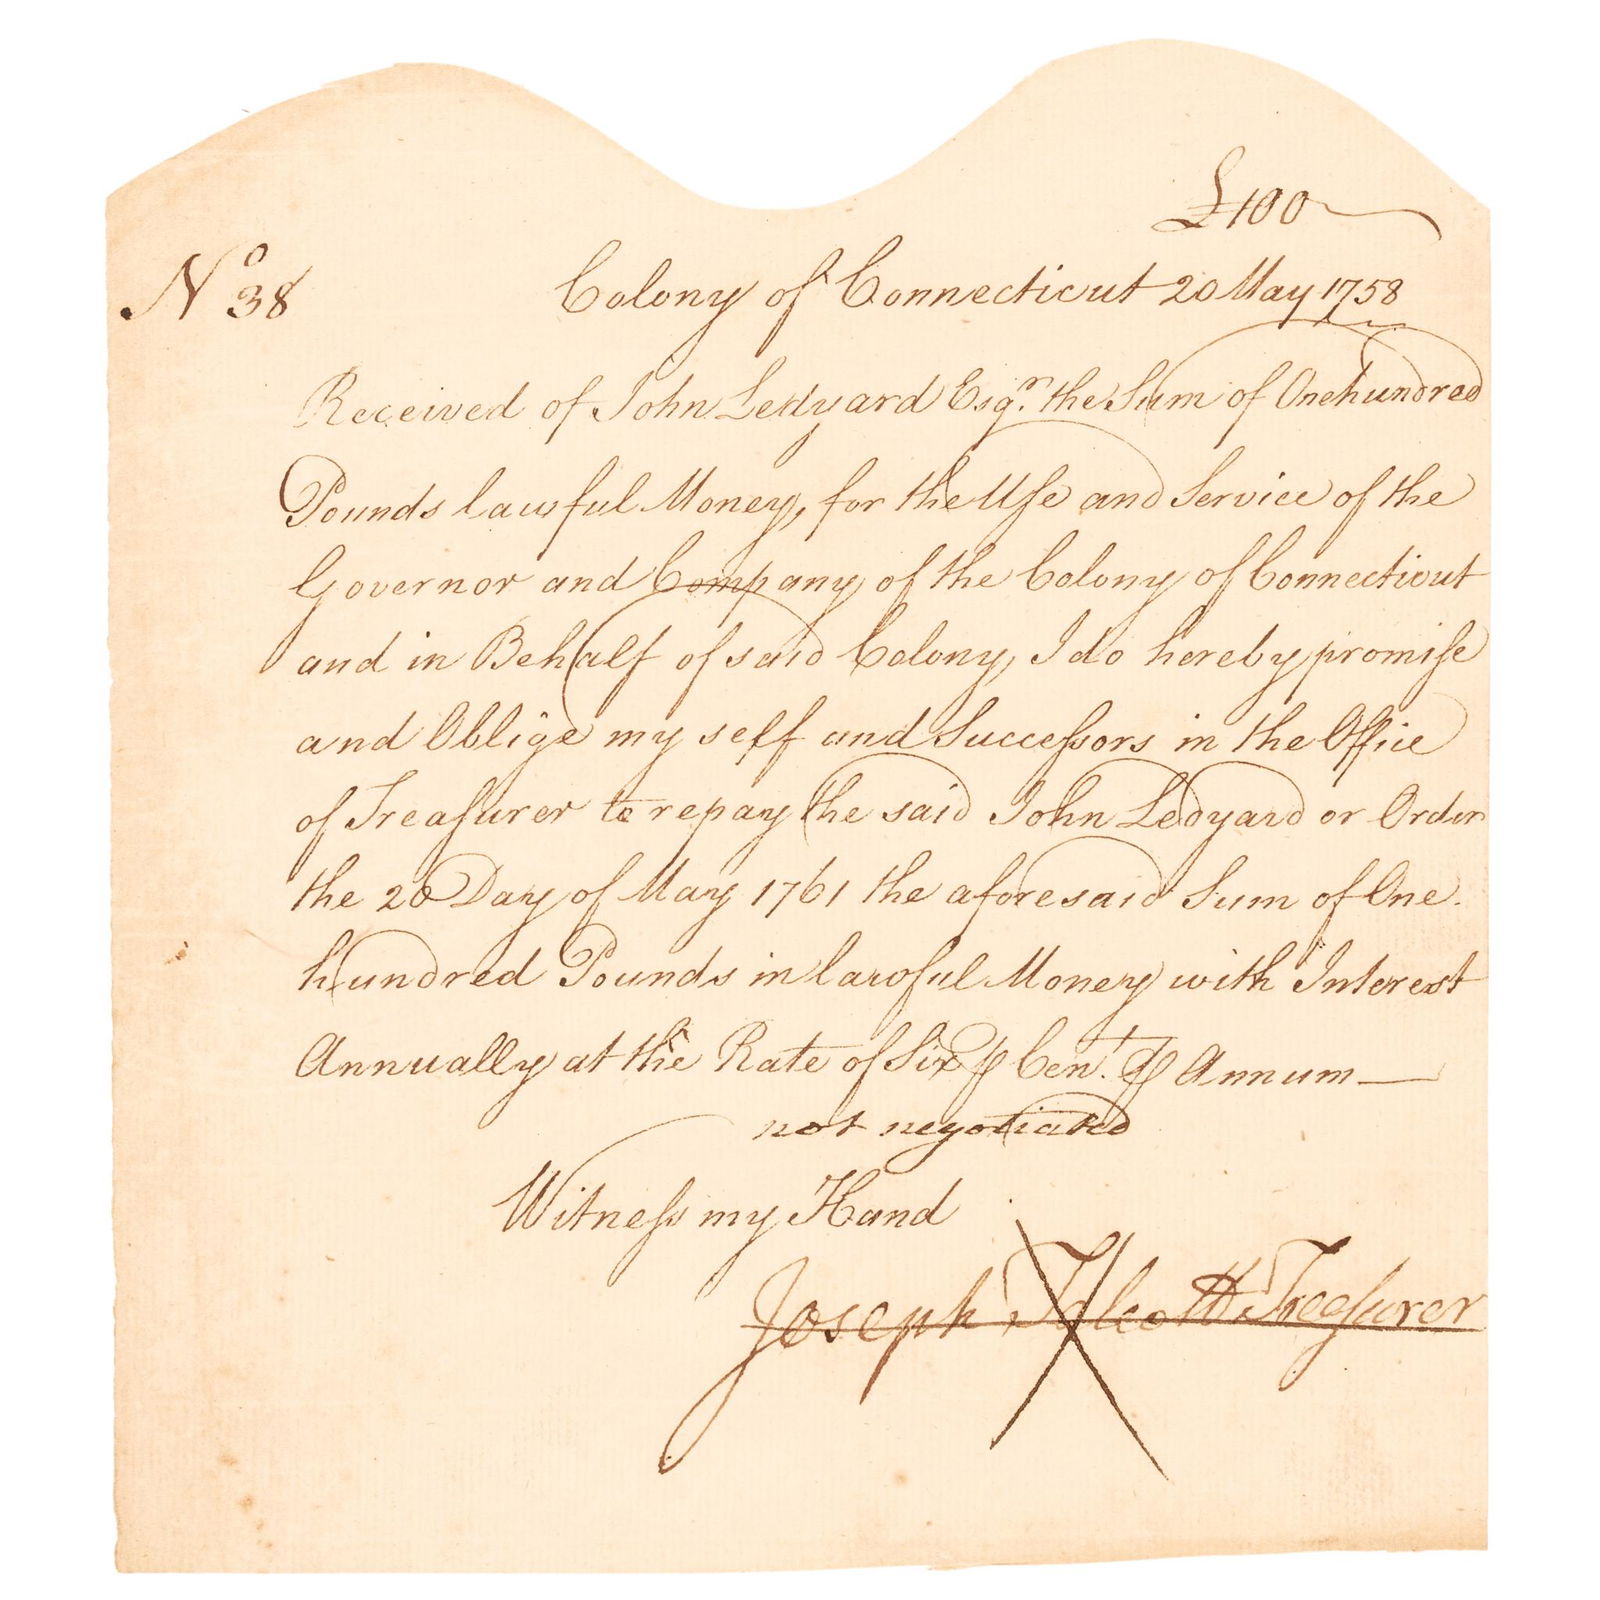 £100
No 38
Colony of Connecticut 20 May 1758
Received of John Ledyard Esqr. the Sum of One hundred
Pounds lawful Money, for the Use and Service of the
Governor and Company of the Colony of Connecticut
and in Behalf of said Colony, I do hereby promise
and Oblige my self and Successors in the Office
of Treasurer to repay the said John Ledyard or Order
the 20 Day of May 1761 the aforesaid Sum of One
hundred Pounds in lawful Money with Interest
Annually at the Rate of Six ⅌ Cent. ⅌ Annum
not negotiated
Witness my Hand
Joseph Talcott Treasurer